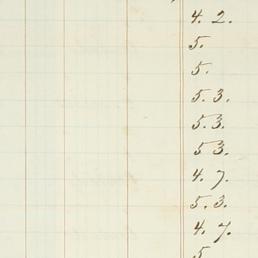 4. 2.
5.
5.
5. 3.
5. 3.
5 3.
4. 7.
5. 3.
4. 7.
5